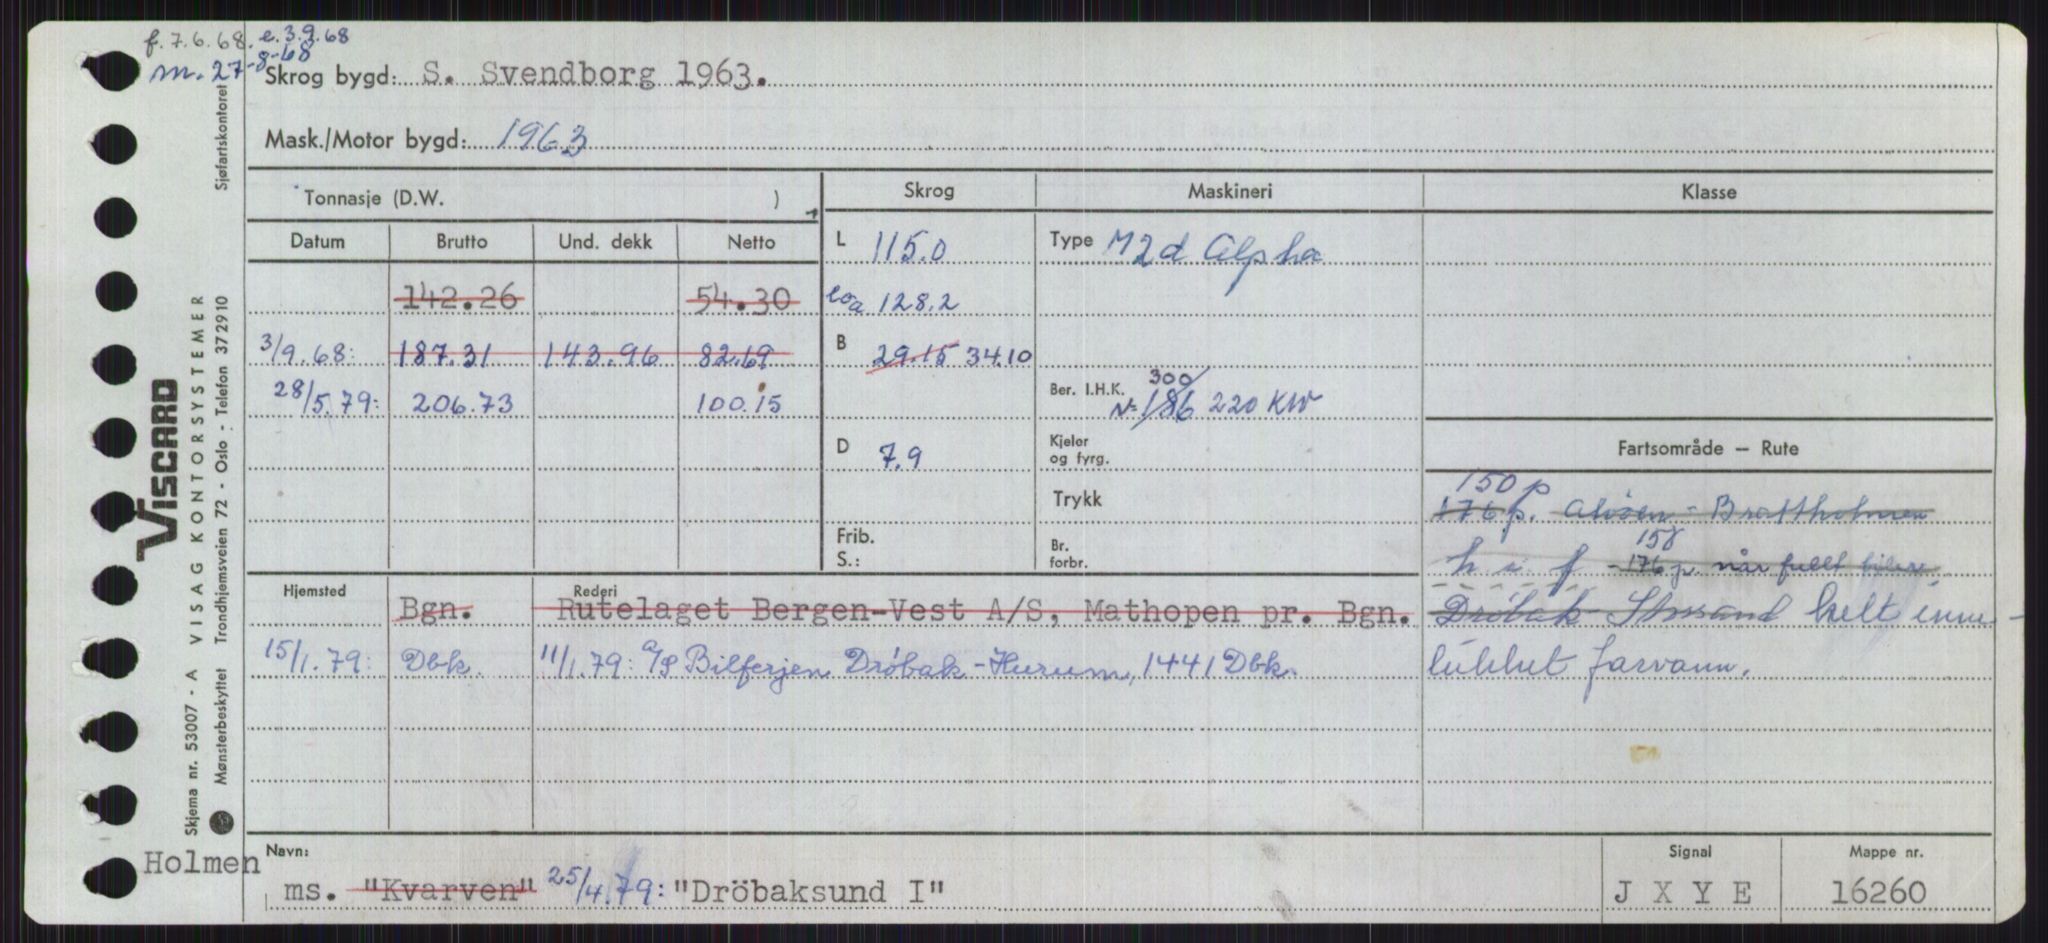 f. 7.6.68. e. 3.9.68
m. 27-8-68
Skrog bygd: S. Svendborg 1963.
Mask./Motor bygd: 1963
Tonnasje (D.W. )
Skrog
Maskineri
Klasse
Datum Brutto Und. dekk Netto
L 115.0
Type M2d Alpha
142.26 54.30
loa 128.2
3/9.68: 187.31 143.96 82.69
B 29.15 34.10
28/5.79: 206.73 100.15
Ber. I.H.K. 300
N= 186 220 KW
D 7.9
Kjeler
og fyrg.
Fartsområde — Rute
Trykk
150 p
176 p. Alvøen - Brattholmen
Frib.
S.:
Br.
forbr.
158
h i f - 176 p. når fullt
Hjemsted Rederi
Bgn. Rutelaget Bergen-Vest A/S, Mathopen pr. Bgn.
Drøbak - Storsand helt inne-
15/1.79: Dbk. 11/1.79: A/S Bilferjen Drøbak-Hurum, 1441 Dbk.
lukket farvann.
Holmen
Navn:
ms. "Kvarven" 25/4.79: "Dröbaksund I"
Signal
J X Y E
Mappe nr.
16260
VISCARD
VISAG KONTORSYSTEMER
Sjøfartskontoret
Skjema nr. 53007 - A
Mønsterbeskyttet Trondhjemsveien 72 - Oslo - Telefon 37 29 10